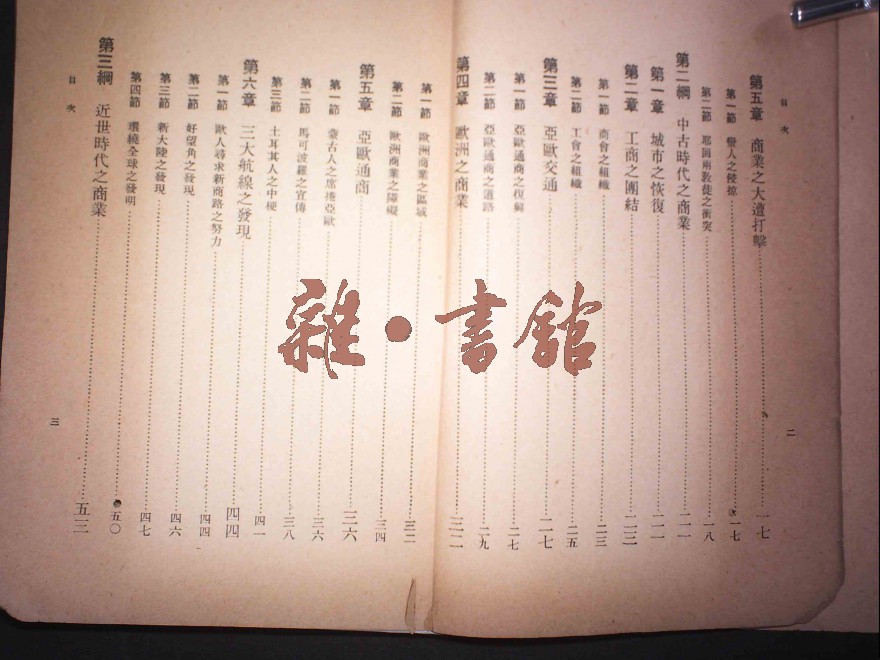 目次
第五章 商業之大遭打擊 一七
第一節 蠻人之侵掠 一七
第二節 耶回兩教徒之衝突 一八
第二綱 中古時代之商業 二一
第一章 城市之恢復 二一
第二章 工商之團結 二三
第一節 商會之組織 二三
第二節 工會之組織 二五
第三章 亞歐交通 二七
第一節 亞歐通商之復蘇 二七
第二節 亞歐通商之道路 二九
第四章 歐洲之商業 三二
二
第一節 歐洲商業之區域 三二
第二節 歐洲商業之障礙 三四
第五章 亞歐通商 三六
第一節 蒙古人之席捲亞歐 三六
第二節 馬可波羅之宣傳 三八
第三節 土耳其人之中梗 四一
第六章 三大航線之發現 四四
第一節 歐人尋求新商路之努力 四四
第二節 好望角之發現 四六
第三節 新大陸之發現 四七
第四節 環繞全球之發明 五〇
第三綱 近世時代之商業 五三
目次
三
雜·書館